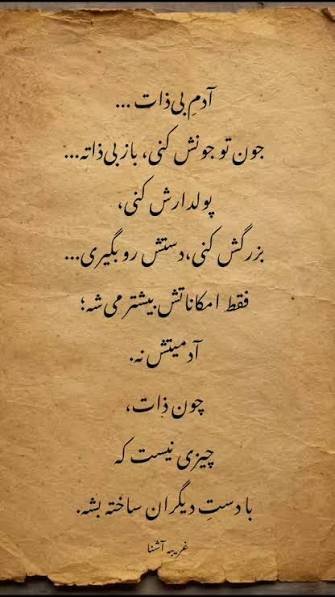 آدمِ بی‌ذات ...
جون تو جونش کنی، باز بی‌ذاته...
پولدارش کنی،
بزرگش کنی، دستش رو بگیری...
فقط امکاناتش بیشتر می‌شه؛
آدمیتش نه.
چون ذات،
چیزی نیست که
با دستِ دیگران ساخته بشه.
غریبه آشنا